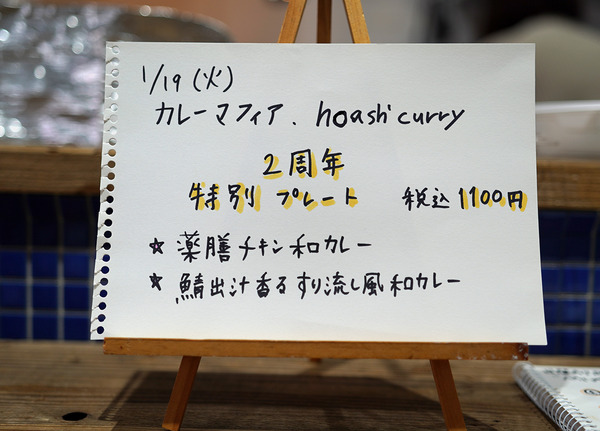 1/19(火)
カレーマフィア. hoashi curry
2周年
特別 プレート 税込1100円
★ 薬膳チキン和カレー
★ 鯖出汁香るすり流し風和カレー